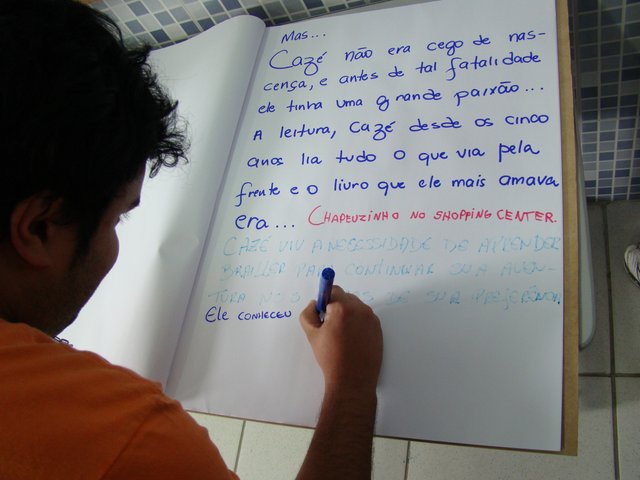 Mas...
Cazé não era cego de nas-
cença, e antes de tal fatalidade
ele tinha uma grande paixão...
A leitura, Cazé desde os cinco
anos lia tudo o que via pela
frente e o livro que ele mais amava
era... CHAPEUZINHO NO SHOPPING CENTER.
CAZÉ VIU A NECESSIDADE DE APRENDER
BRAILLER PARA CONTINUAR SUA AVEN-
TURA NOS DE SUA PREFERÊNCIA.
Ele CONHECEU